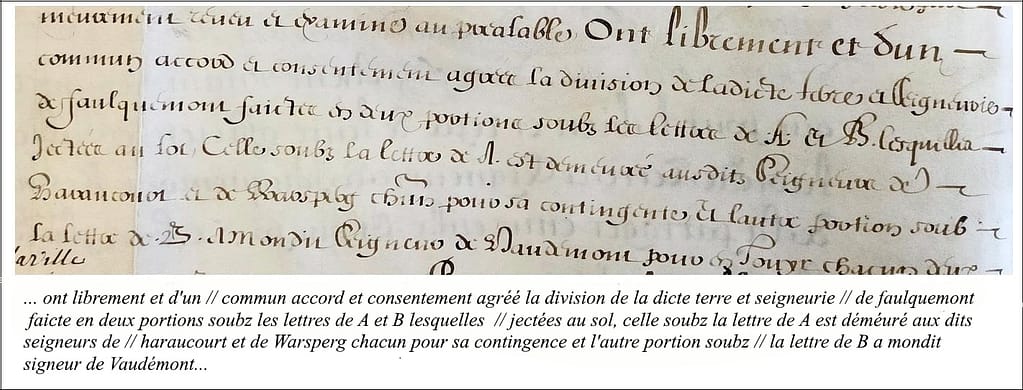 meurement reveu et examiné au prealable, Ont librement et d'un
commun accord et consentement agréée la division de ladicte terre et Seigneurie
de faulquemont faictee en deux portions soubz lee lettre de A et B. lesquelle
Jectéee au sol, Celle soubz la lettre de A. est demeuréé ausdits Seigneurs de
Haraucourt et de Warsperg chun pour sa contingente, Et lautre portion soub
la lettre de B. A Mondit Seigneur de Vaudemont pour en Jouyr chacun
la ville
... ont librement et d'un // commun accord et consentement agréé la division de la dicte terre et seigneurie // de faulquemont
faicte en deux portions soubz les lettres de A et B lesquelles // jectées au sol, celle soubz la lettre de A est déméuré aux dits
seigneurs de // haraucourt et de Warsperg chacun pour sa contingence et l'autre portion soubz // la lettre de B a mondit
signeur de Vaudémont...